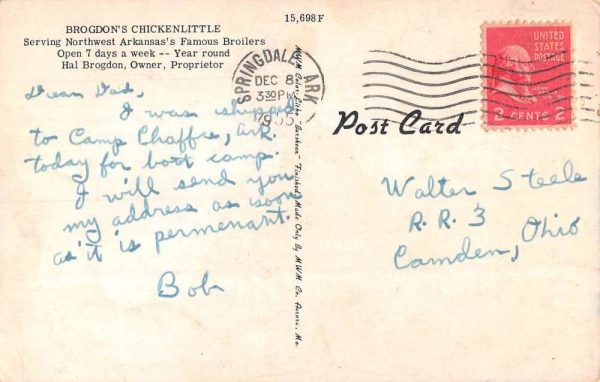 BROGDON'S CHICKENLITTLE
Serving Northwest Arkansas's Famous Broilers
Open 7 days a week -- Year round
Hal Brogdon, Owner, Proprietor
15,698F
Dear Dad,
I was shipped
to Camp Chaffee, Ark
today for boot camp.
I will send you
my address as soon
as it is permenant.
Bob
M.W.M. Color-Litho "Finished" Made Only By M.W.M. Co., Aurora, Mo.
SPRINGDALE, ARK
DEC 8
330 PM
1955
UNITED
STATES
POSTAGE
2 CENTS 2
Post Card
Walter Steele
R. R. 3
Camden, Ohio